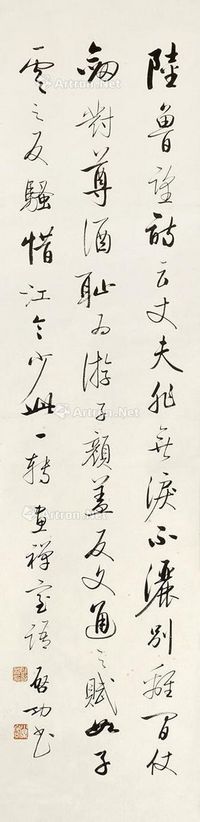 陸魯望詩云丈夫非無淚不灑別離間仗
劍對尊酒恥為游子顏蓋反文通之賦如子
雲之反騷惜江令少此一轉畫禪室語啟功書